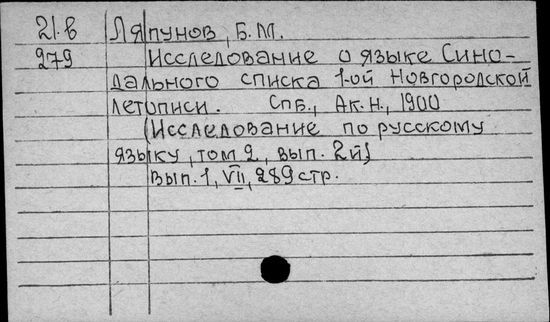 21.в Ляпунов, Б.М.
279 Исследование о языке Сино-
дального списка 1-ой Новгородской
летописи. Спб., Ак.Н., 1900
(Исследование по русскому
языку, том 2, вып. 2й)
Вып. 1, VII, 289 стр.